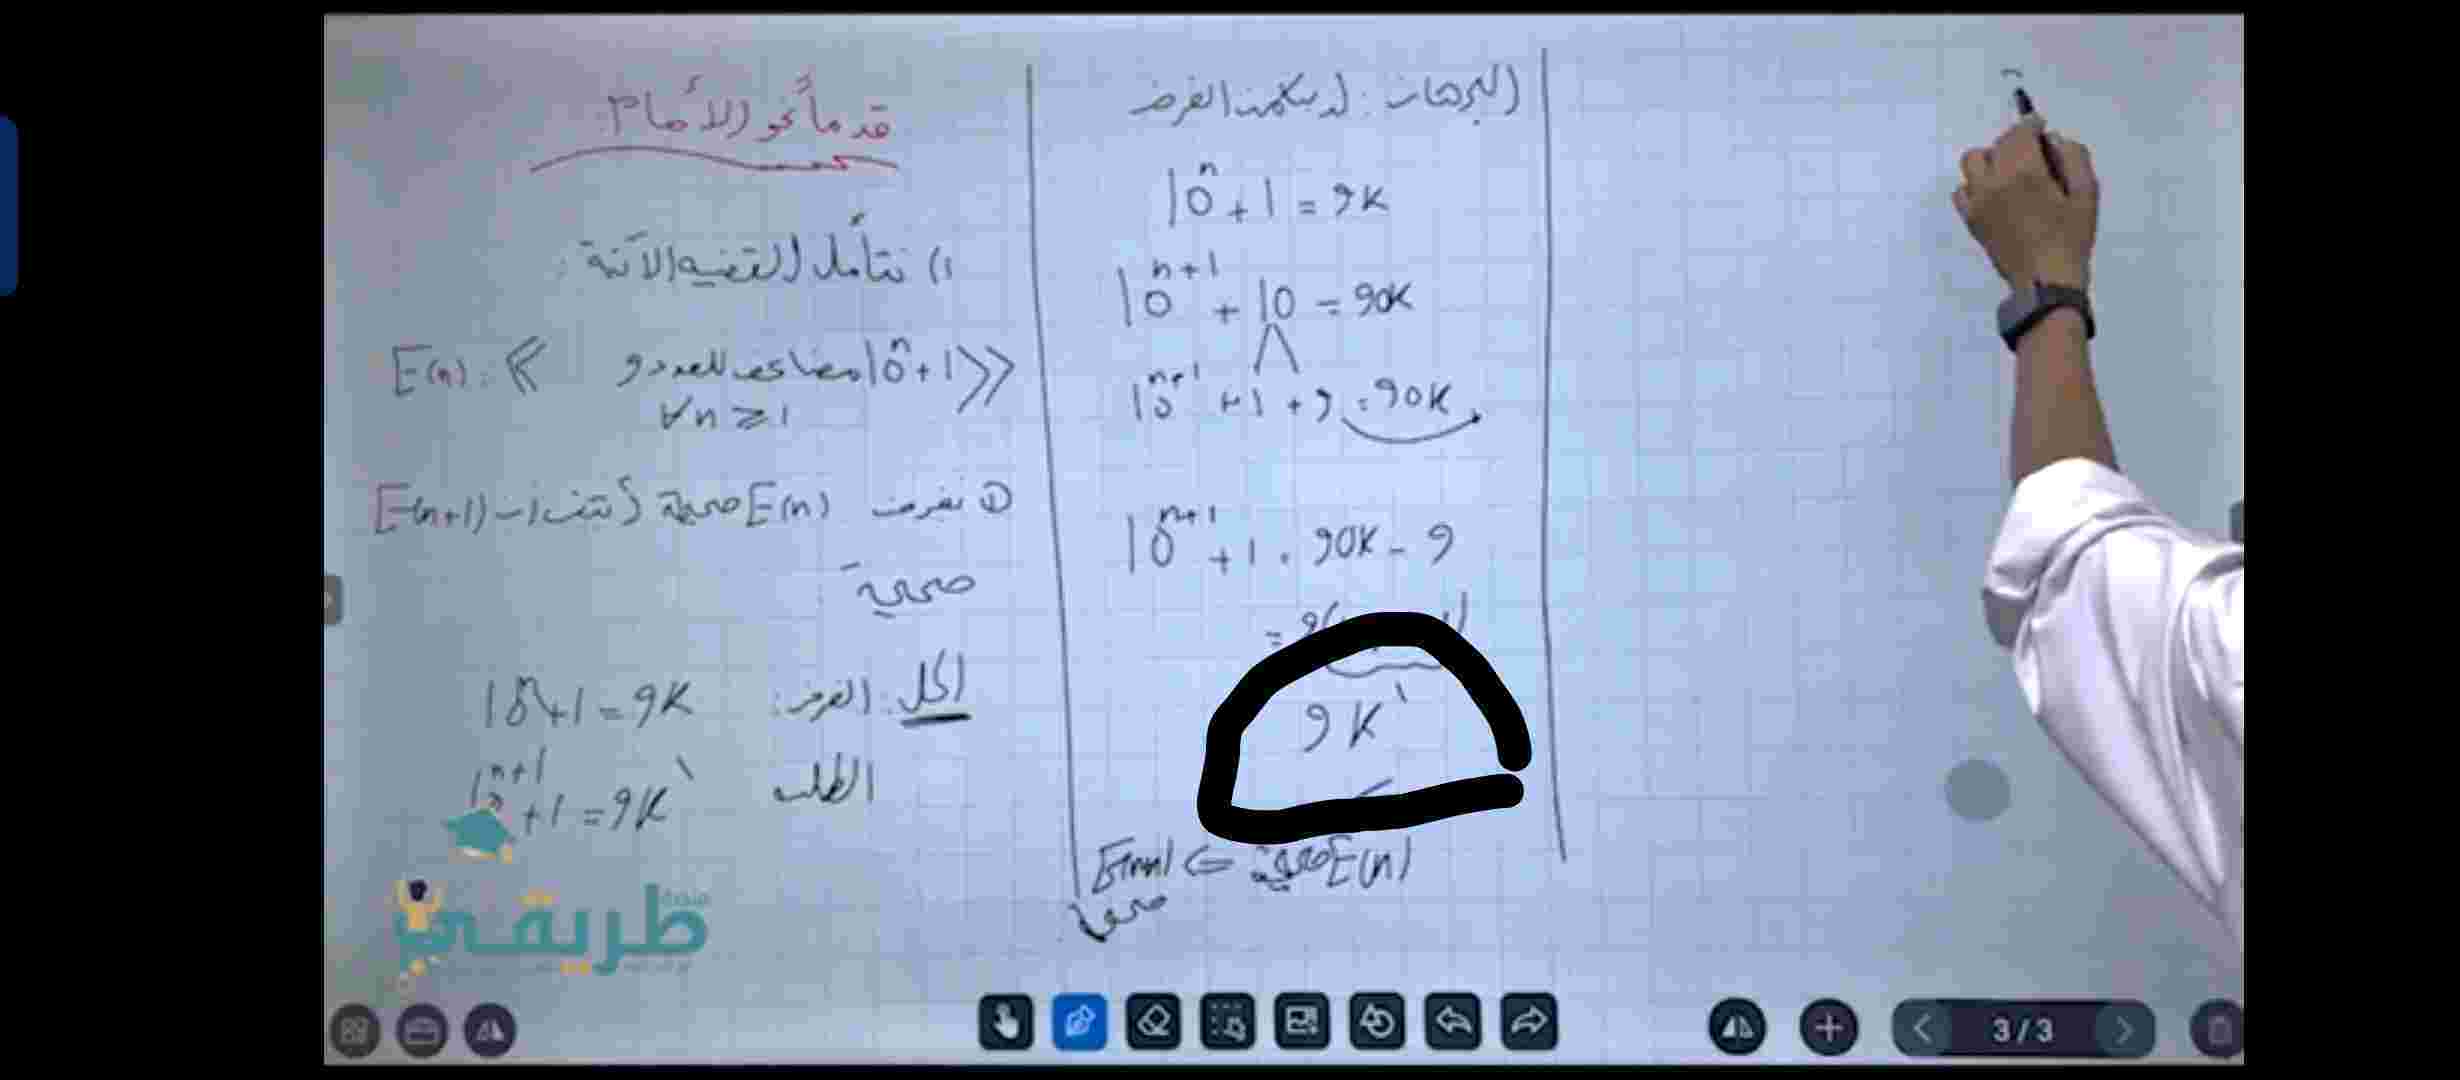 قدماً نحو الأمام
1) نتأمل القضية الآتية:
E(n): « 10ⁿ+1 مضاعف للعدد 9 »
∀n ≥ 1
① نفرض E(n) صحيحة أثبت أن E(n+1)
صحيحة
الحل: الفرض: 10ⁿ+1 = 9K
الطلب 10ⁿ⁺¹+1 = 9K'
البرهان: لدينا من الفرض
10ⁿ + 1 = 9K
10ⁿ⁺¹ + 10 = 90K
10ⁿ⁺¹ + 1 + 9 = 90K
10ⁿ⁺¹ + 1 = 90K - 9
= 9(
9K'
E(n) صحيحة ⇒ E(n+1)
صحيحة
منصة
طريقي
3/3